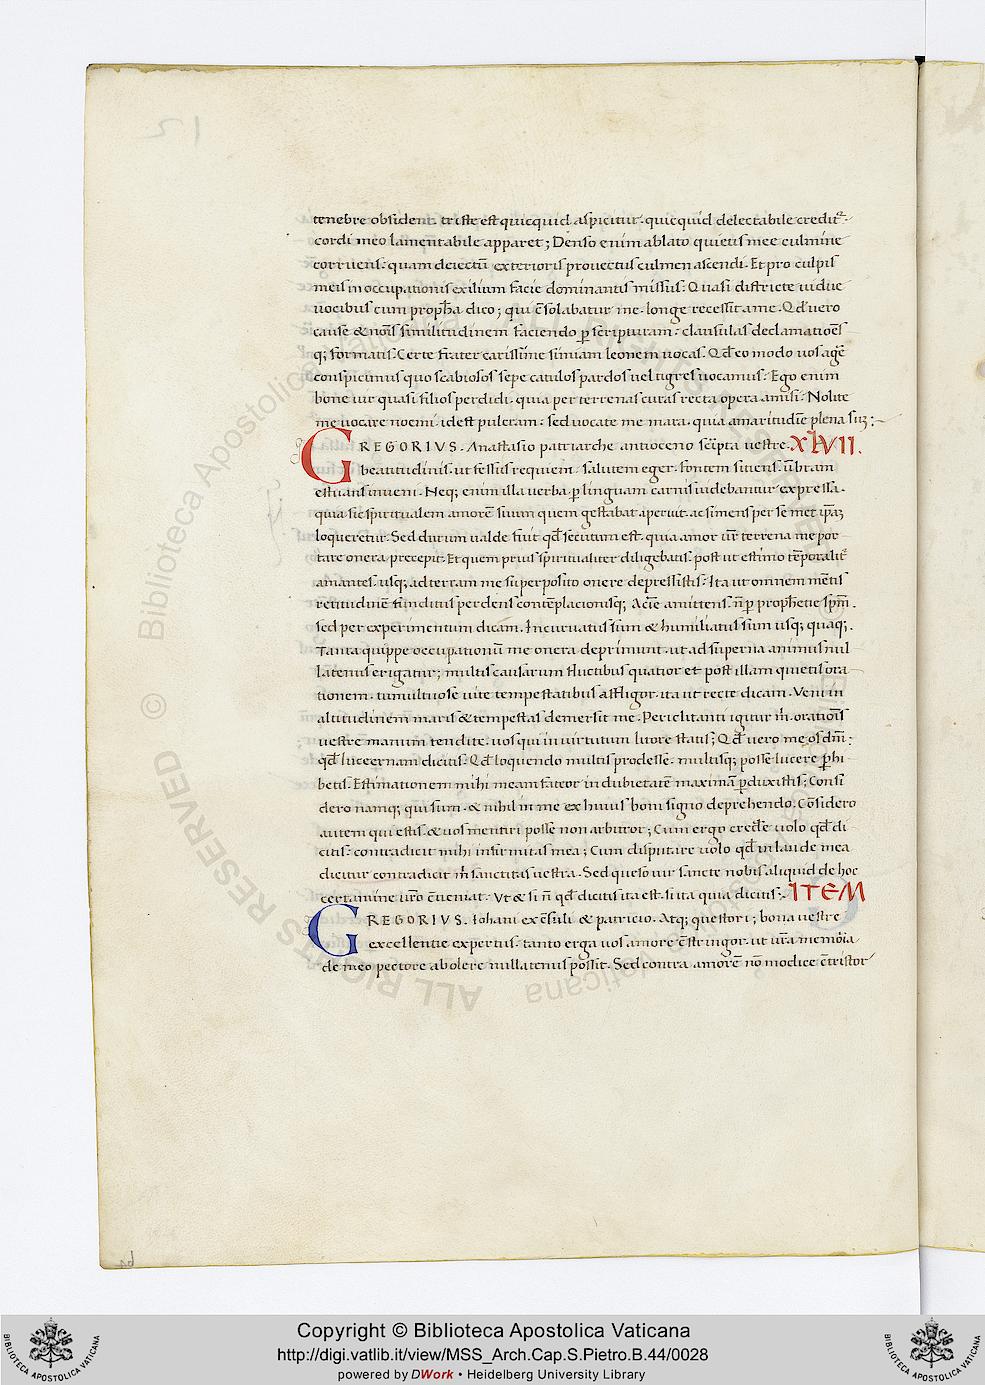 tenebre obsident. triste est quicquid aspicitur. quicquid delectabile credit᷑.
cordi meo lamentabile apparet; Denso enim ablato quietis mee culmine
corruens. quam deiectū exterioris prouectus culmen ascendi. Et pro culpis
meis in occupationis exilium facie dominantis missus. Quasi districte uidue
uocibus cum propħa dico; qui c̄solabatur me. longe recessit a me. Qd̄ uero
cause & nōis similitudinem faciendo ꝑ scripturam. clausulas declamationes
q; formatis. Certe frater carissime simiam leonem uocas. Qd̄ eo modo uos agē
conspicimus quo scabiosos sepe catulos pardos uel tigres uocamus. Ego enim
bone uir quasi filios perdidi. quia per terrenas curas recta opera amisi. Nolite
me uocare noemi. id est pulcram. sed uocate me mara. quia amaritudīe plena suꝫ:
GREGORIVS. Anastasio patriarche antioceno sc̄ipta uestre. XLVII.
beautudinis. ut fessus requiem. salutem eger. fontem sitiens. ūbram
estuans inueni. Neq; enim illa uerba. ꝑ linguam carnis uidebantur expressa.
quia sic spiritualem amorē suum quem gestabat aperuit. ac si mens per se met ip̄aꝫ
loqueretur. Sed durum ualde fuit qd̄ secutum est. quia amor ur̄ terrena me por
tare onera precepit. Et quem prius spiritualiter diligebatis. post ut estimo tēporalit᷑
amantes. usq; ad terram me superposito onere depressistis. Ita ut omnem mētis
retitudinē funditus perdens contēplacionisq; Aciē amittens. n̄ ꝑ prophetie spm̄.
sed per experimentum dicam. Incuruatus sum & humiliatus sum usq; quaq;.
Tanta quippe occupationū me onera deprimunt. ut ad superna animus nul
latenus erigatur; multis causarum fluctibus quatior et post illam quietis ora
tionem. tumultuose uite tempestatibus affligor. ita ut recte dicam. Veni in
altitudinem maris & tempestas demersit me. Periclitanti igitur m̄. orationis
uestre manum tendite. uos qui in uirtutum litore statis; Qd̄ uero me os dm̄:
qd̄ lucernam dicitis. Qd̄ loquendo multis prodesse. multisq; posse lucere ꝑhi
betis. Estimationem mihi meam fateor in dubietatē maximā ꝑduxistis; Consi
dero namq; qui sum. & nihil in me ex huius boni signo deprehendo. Cōsidero
autem qui estis. & uos mentiri posse non arbitror; Cum ergo credē uolo qd̄ di
citis. contradicit mihi infirmitas mea; Cum disputare uolo qd̄ in laude mea
dicitur contradicit m̄ sanctitas uestra. Sed queso uir sancte nobis aliquid de hoc
certamine ur̄o c̄ueniat. Vt & si n̄ qd̄ dicitis ita est. sit ita quia dicitis. ITEM
GREGORIVS. Iohani exc̄suli & patricio. Atq; questori; bona uestre
excellentie expertus. tanto erga uos amore c̄stringor. ut ur̄a memōia
de meo pectore abolere nullatenus possit. Sed contra amorē nō modice c̄tristor
Copyright © Biblioteca Apostolica Vaticana
http://digi.vatlib.it/view/MSS_Arch.Cap.S.Pietro.B.44/0028
powered by DWork • Heidelberg University Library